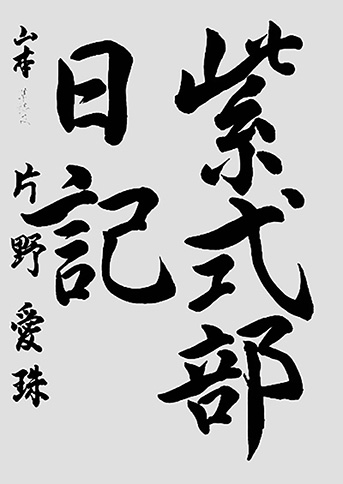 紫式部
日記
山本 片野愛珠